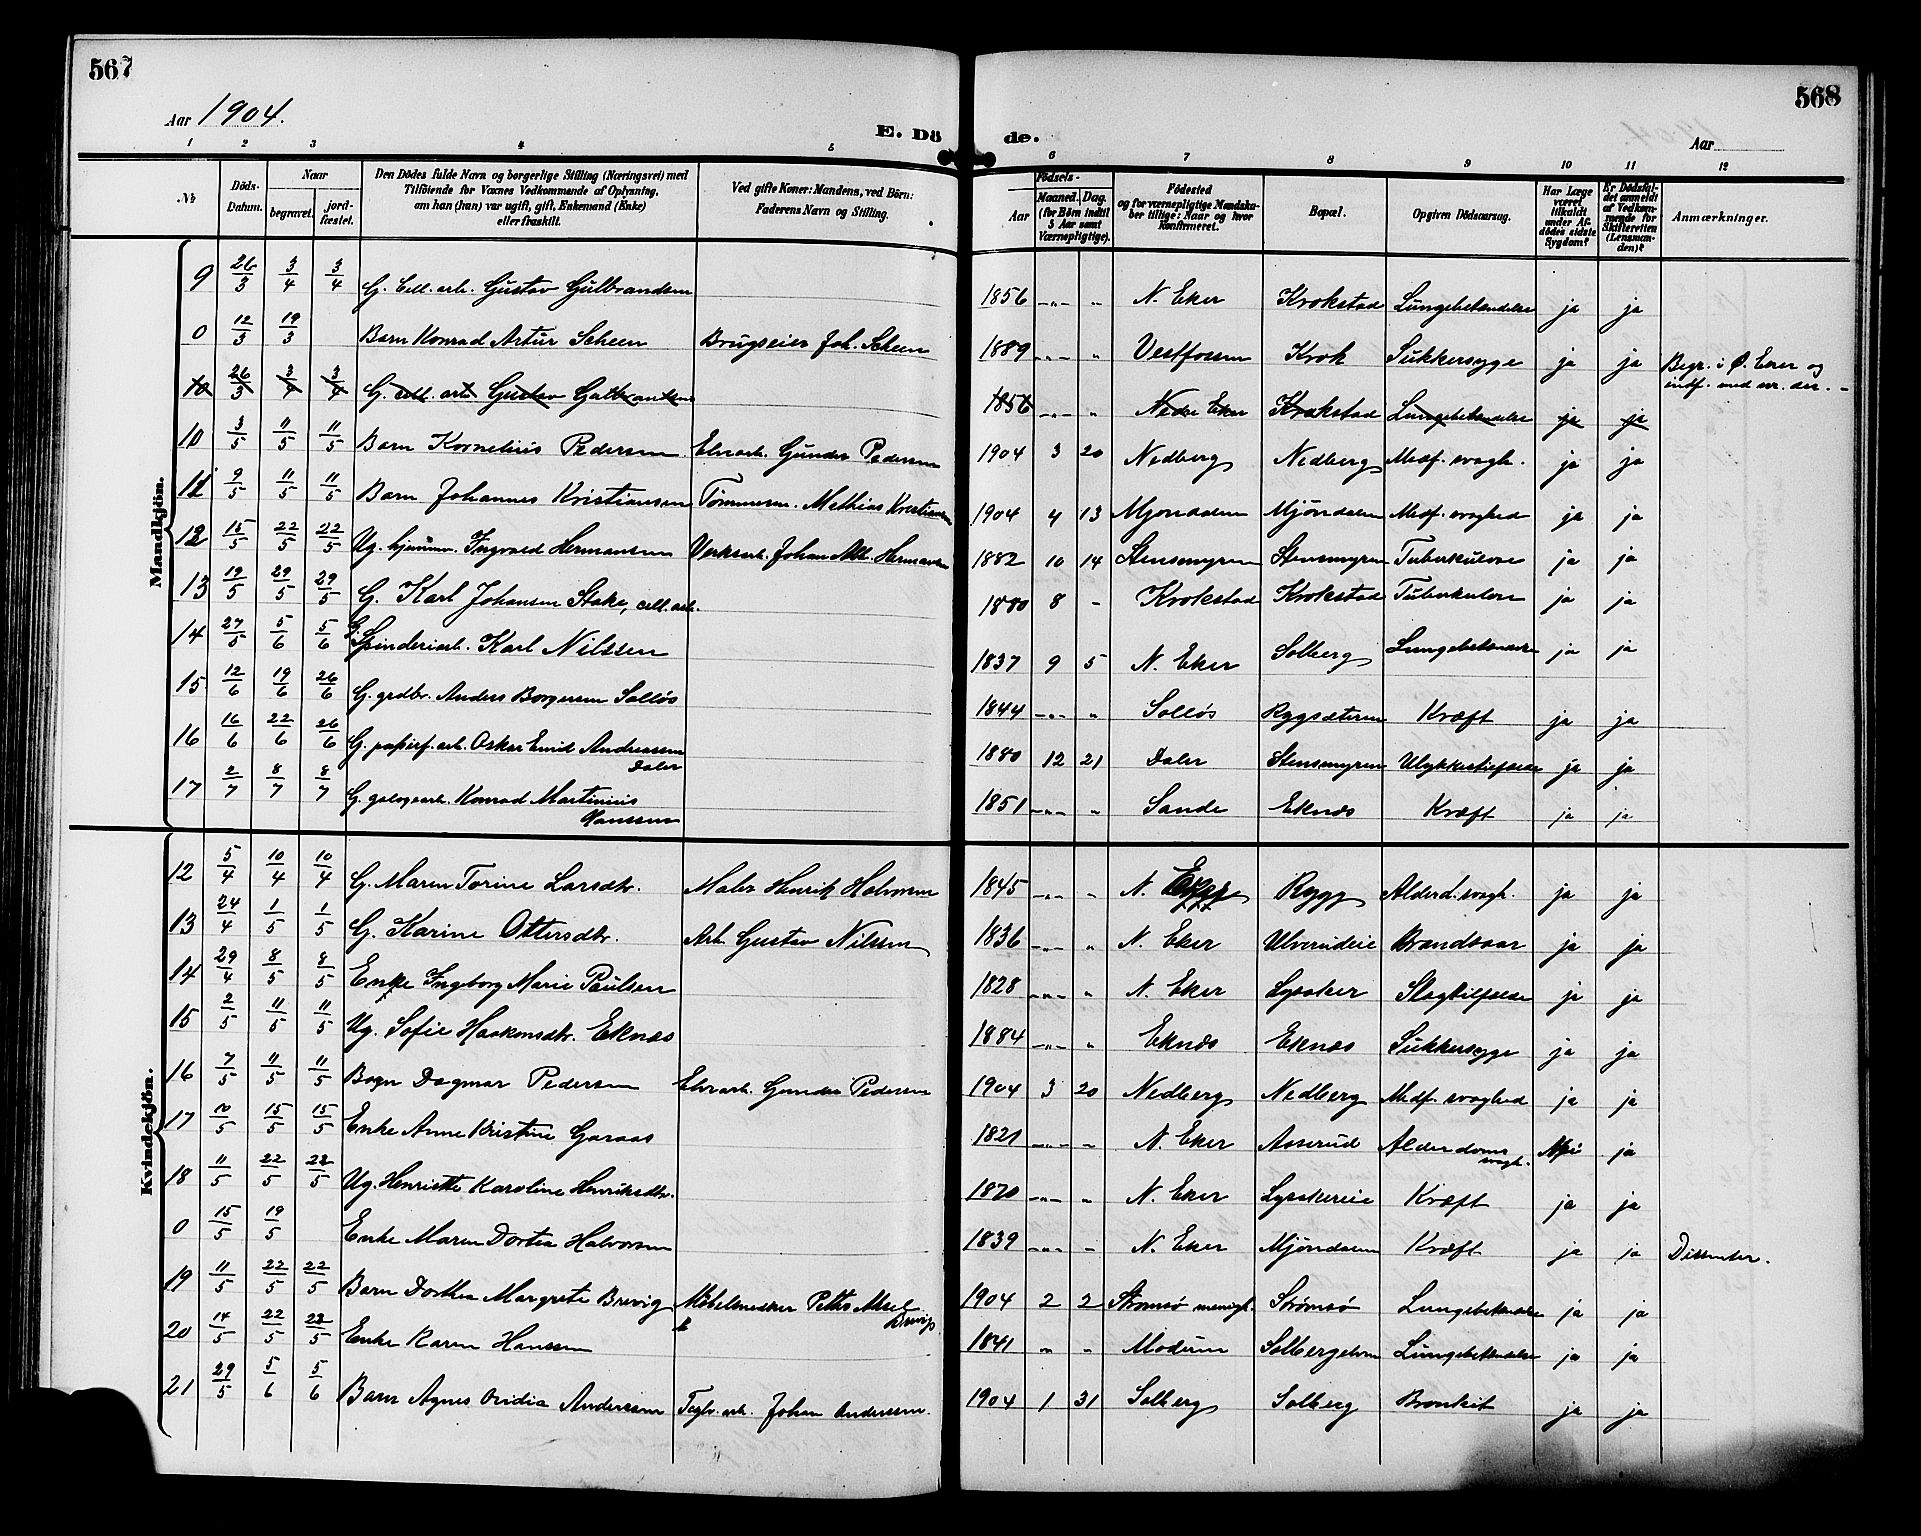 567
568
Aar 1904.
E. Dö de.
Aar
1 2 3 4 5 6 7 8 9 10 11 12
№ | Döds-Datum. | Naar begravet. | jord-fæstet. | Den Dödes fulde Navn og borgerlige Stilling (Næringsvei) med Tilföiende for Voxnes Vedkommende af Oplysning, om han (hun) var ugift, gift, Enkemand (Enke) eller fraskilt. | Ved gifte Koner: Mandens, ved Börn: Faderens Navn og Stilling. | Födsels- Aar | Maaned. Dag. (for Börn indtil 5 Aar samt Værnepligtige). | Födested og for værnepligtige Mandska-ber tillige: Naar og hvor Konfirmeret. | Bopæl. | Opgiven Dödsaarsag. | Har Læge været tilkaldt under Af-dödes sidste Sygdom? | Er Dödsfal-det anmeldt af Vedkom-mende for Skifteretten (Lensman-den)? | Anmærkninger.
Mandkjön.
9 26/3 3/4 3/4 G. Cell. arb. Gustav Gulbrandsen 1856 -"- " N. Eker Krokstad Lungebetændelse ja ja
0 12/3 19/3 Barn Konrad Artur Scheen Brugseier Joh. Scheen 1889 -"- " Vestfossen Krok Sukkersyge ja ja Begr. i Ø. Eker og indf. med nr. der. -
10 26/3 3/4 3/4 G. cell. arb. Gustav Gulbrandsen 1856 -"- " Nedre Eker Krokstad Lungebetændelse ja ja
10 3/5 11/5 11/5 Barn Kornelius Pedersen Elvearb. Gunder Pedersen 1904 3 20 Nedberg Nedberg Medf. svagh. ja ja
11 9/5 11/5 11/5 Barn Johannes Kristiansen Tømmerm. Mathias Kristiansen 1904 4 13 Mjøndalen Mjöndalen Medf. svaghed ja ja
12 15/5 22/5 22/5 Ug. hjemmv. Ingvald Hermansen Verksarb. Johan Alb. Hermansen 1882 10 14 Stensmyren Stensmyren Tuberkulose ja ja
13 19/5 29/5 29/5 G. Karl Johansen Stake, cell. arb. 1880 8 - Krokstad Krokstad Tuberkulose ja ja
14 27/5 5/6 5/6 G. Spinderiarb. Karl Nilssen 1837 9 5 N. Eker Solberg Lungebetændelse ja ja
15 12/6 19/6 26/6 G. grdbr. Anders Borgersen Solløs 1844 -"- " Solløs Ryggsæteren Kræft ja ja
16 16/6 22/6 26/6 G. papirf. arb. Oskar Emil Andreassen Daler 1880 12 21 Daler Stensmyren Ulykkestilfælde ja ja
17 2/7 8/7 8/7 G. gulogsarb. Konrad Martinius Hanssen 1851 -"- " Sande Eknæs Kræft ja ja
Kvindekjön.
12 5/4 10/4 10/4 G. Maren Torine Larsdtr. Maler Henrik Halvorsen 1845 -"- " N. Eker Rygg Alderd. svagh. ja ja
13 24/4 1/5 1/5 G. Karine Ottersdtr. Arb. Gustav Nilssen 1836 -"- " N. Eker Ulverudeie Brandsaar ja ja
14 29/4 8/5 8/5 Enke Ingeborg Marie Paulsen 1828 -"- " N. Eker Lysaker Slagtilfælde ja ja
15 2/5 11/5 11/5 Ug. Sofie Haakensdtr. Eknæs 1884 -"- " Eknæs Eknæs Sukkersyge ja ja
16 7/5 11/5 11/5 Barn Dagmar Pedersen Elvearb. Gunder Pedersen 1904 3 20 Nedberg Nedberg Medf. svaghed ja ja
17 10/5 15/5 15/5 Enke Anne Kristine Garaas 1821 -"- - N. Eker Asserud Alderdoms svagh. Nei ja
18 11/5 22/5 22/5 Ug. Henriette Karoline Henriksdtr. 1820 -"- " N. Eker Lysakereie Kræft ja ja
0 15/5 19/5 Enke Maren Dortea Halvorsen 1839 -"- - N. Eker Mjöndalen Kræft ja ja Dissenter.
19 11/5 22/5 22/5 Barn Dorthea Margrete Brevig Møbelsnedker Brevig 1904 2 2 Strømsø menigh. Strømsø Lungebetændelse ja ja
20 14/5 22/5 22/5 Enke Karen Hanssen 1841 " " Modum Solbergelven Lungebetændelse ja ja
21 29/5 5/6 5/6 Barn Agnes Ovidia Anderssen Teglv. arb. Johan Anderssen. 1904 1 31 Solberg Solberg Bronkit ja ja